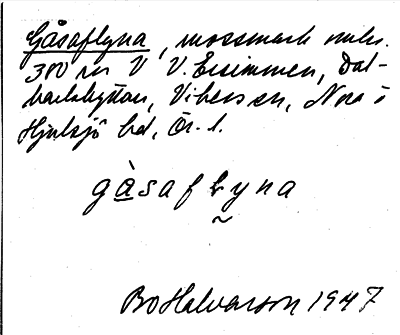 Gåsaflyna, mossmark omkr.
300 m V V. Eesimmen, Dal-
karlshyttan, Vikers sn, Nora o
Hjulsjö bd, Ör. l.
gå̀saflyna
Bo Halvarson 1947